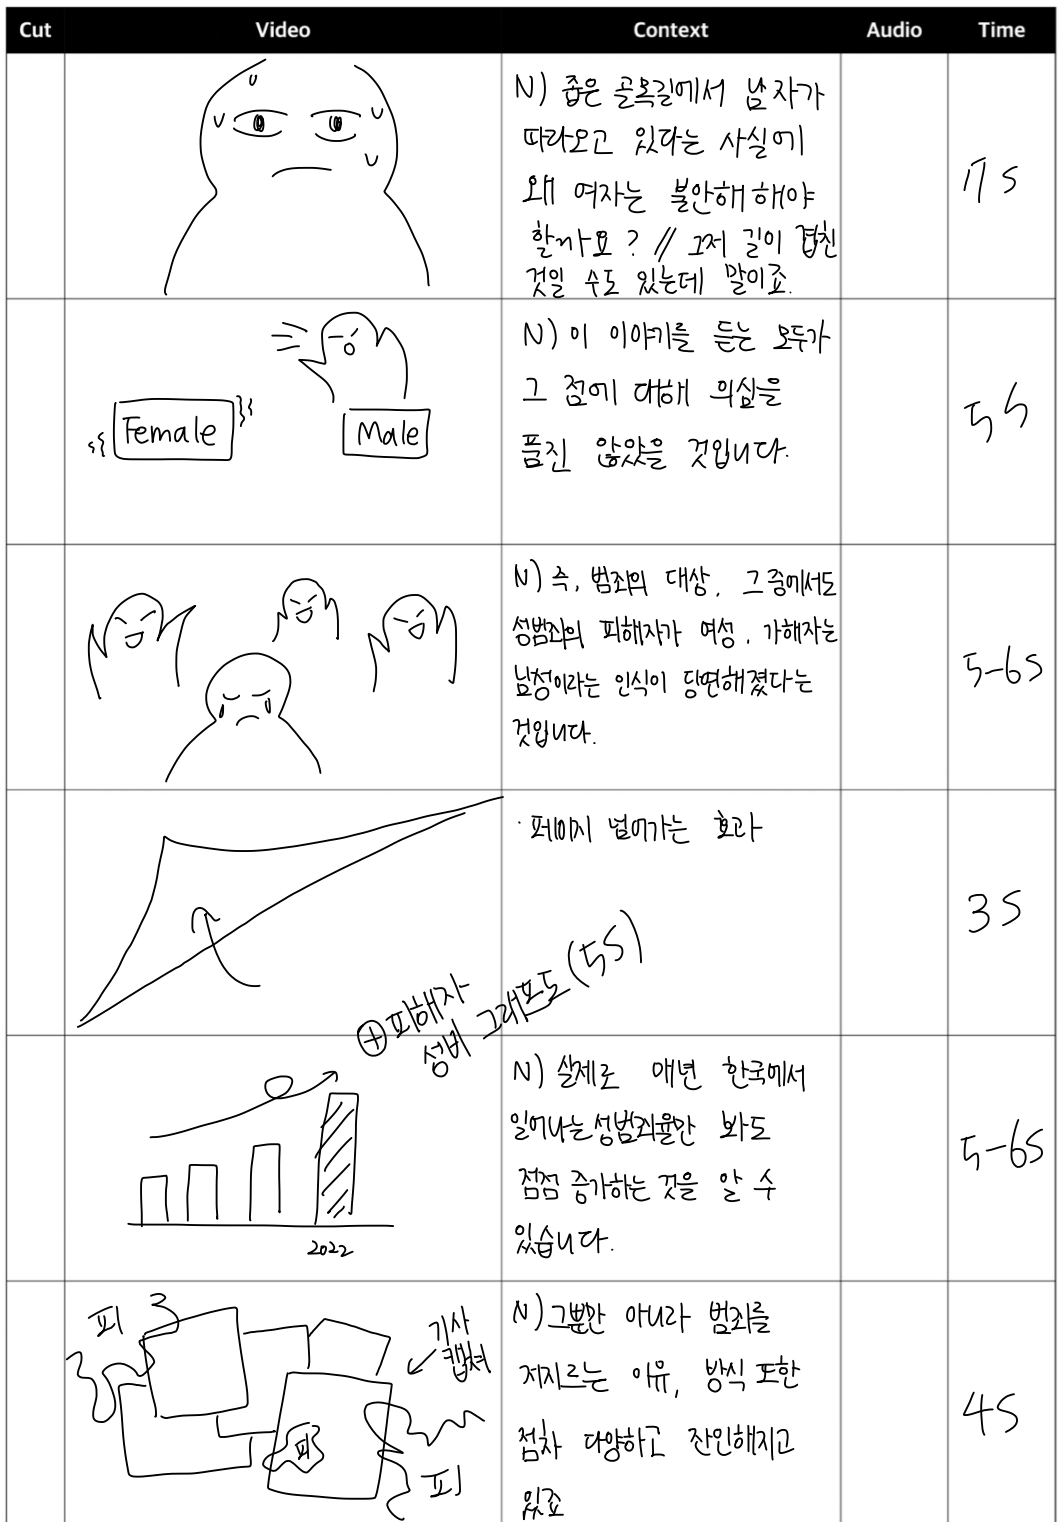 Cut Video Context Audio Time
N) 좁은 골목길에서 남자가
따라오고 있다는 사실에
왜 여자는 불안해해야
할까요? // 그저 길이 겹친
것일 수도 있는데 말이죠.
17 s
Female
Male
N) 이 이야기를 듣는 모두가
그 점에 대해 의심을
품진 않았을 것입니다.
5 s
N) 즉, 범죄의 대상, 그중에서도
성범죄의 피해자가 여성, 가해자는
남성이라는 인식이 당연해졌다는
것입니다.
5-6s
· 페이지 넘어가는 효과
3 s
⊕ 피해자
성비 그래프도 (5s)
2022
N) 실제로 매년 한국에서
일어나는 성범죄율만 봐도
점점 증가하는 것을 알 수
있습니다.
5-6s
피
기사
캡쳐
피
피
N) 그뿐만 아니라 범죄를
저지르는 이유, 방식 또한
점차 다양하고 잔인해지고
있죠
4s